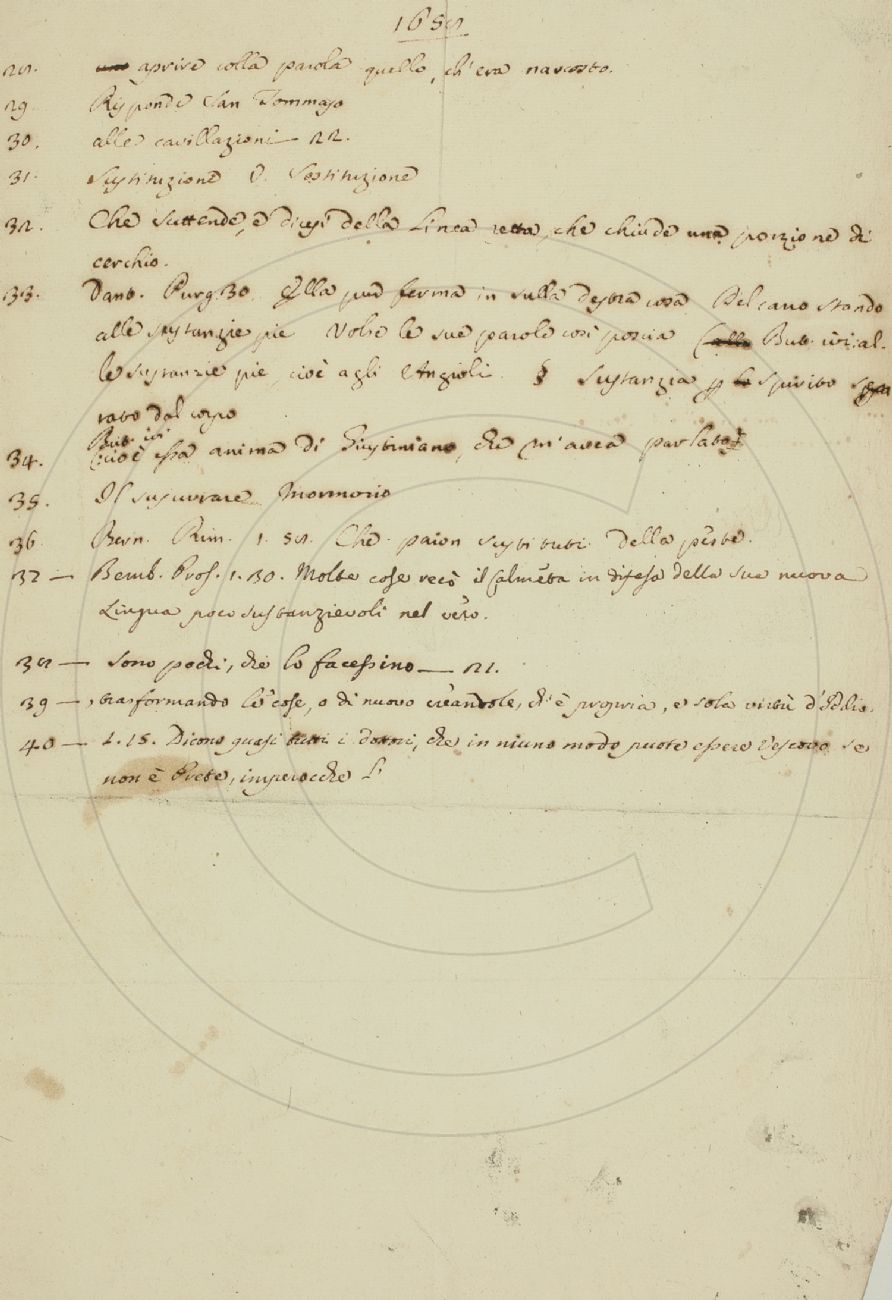 1658
28. uno aprire colla parola quello, ch'era nascosto.
29 Risponde San Tommaso
30. alle cavillazioni — 22.
31. Sustituzione V. Sostituzione
32. Che suttende, e dicesi della Linea retta, che chiude una porzione di
cerchio.
33. Dant. Purg. 30. Ella pur ferma in sulla destra cosa Del carro stando
alle sustanzie pie Volse le sue parole così poscia (alle But. ivi: al-
le sustanzie pie, cioè agli Angioli. § Sustanzia lo spirito
rato dal corpo
But. ivi
34. (cioè essa anima di Giustiniano, che m'avea parlato
35. Il susurrare Mormorio
36. Bern. Rim. 1. 58. Che paion sustituti della peste.
37 — Bemb. Pros. 1. 30. Molte cose recò il Calmeta in difesa della sue nuova
Lingua poco sustanzievoli nel vero.
38 — Sono pochi, che lo facessino — 21.
39 — trasformando le cose, o di nuovo creandole, ch'è propria, e sola virtù d'Iddio.
40 — 1. 15. Dicono quasi tutti i dottori, che in niuno modo puote essere Vescovo se
non è Prete, imperocche l'